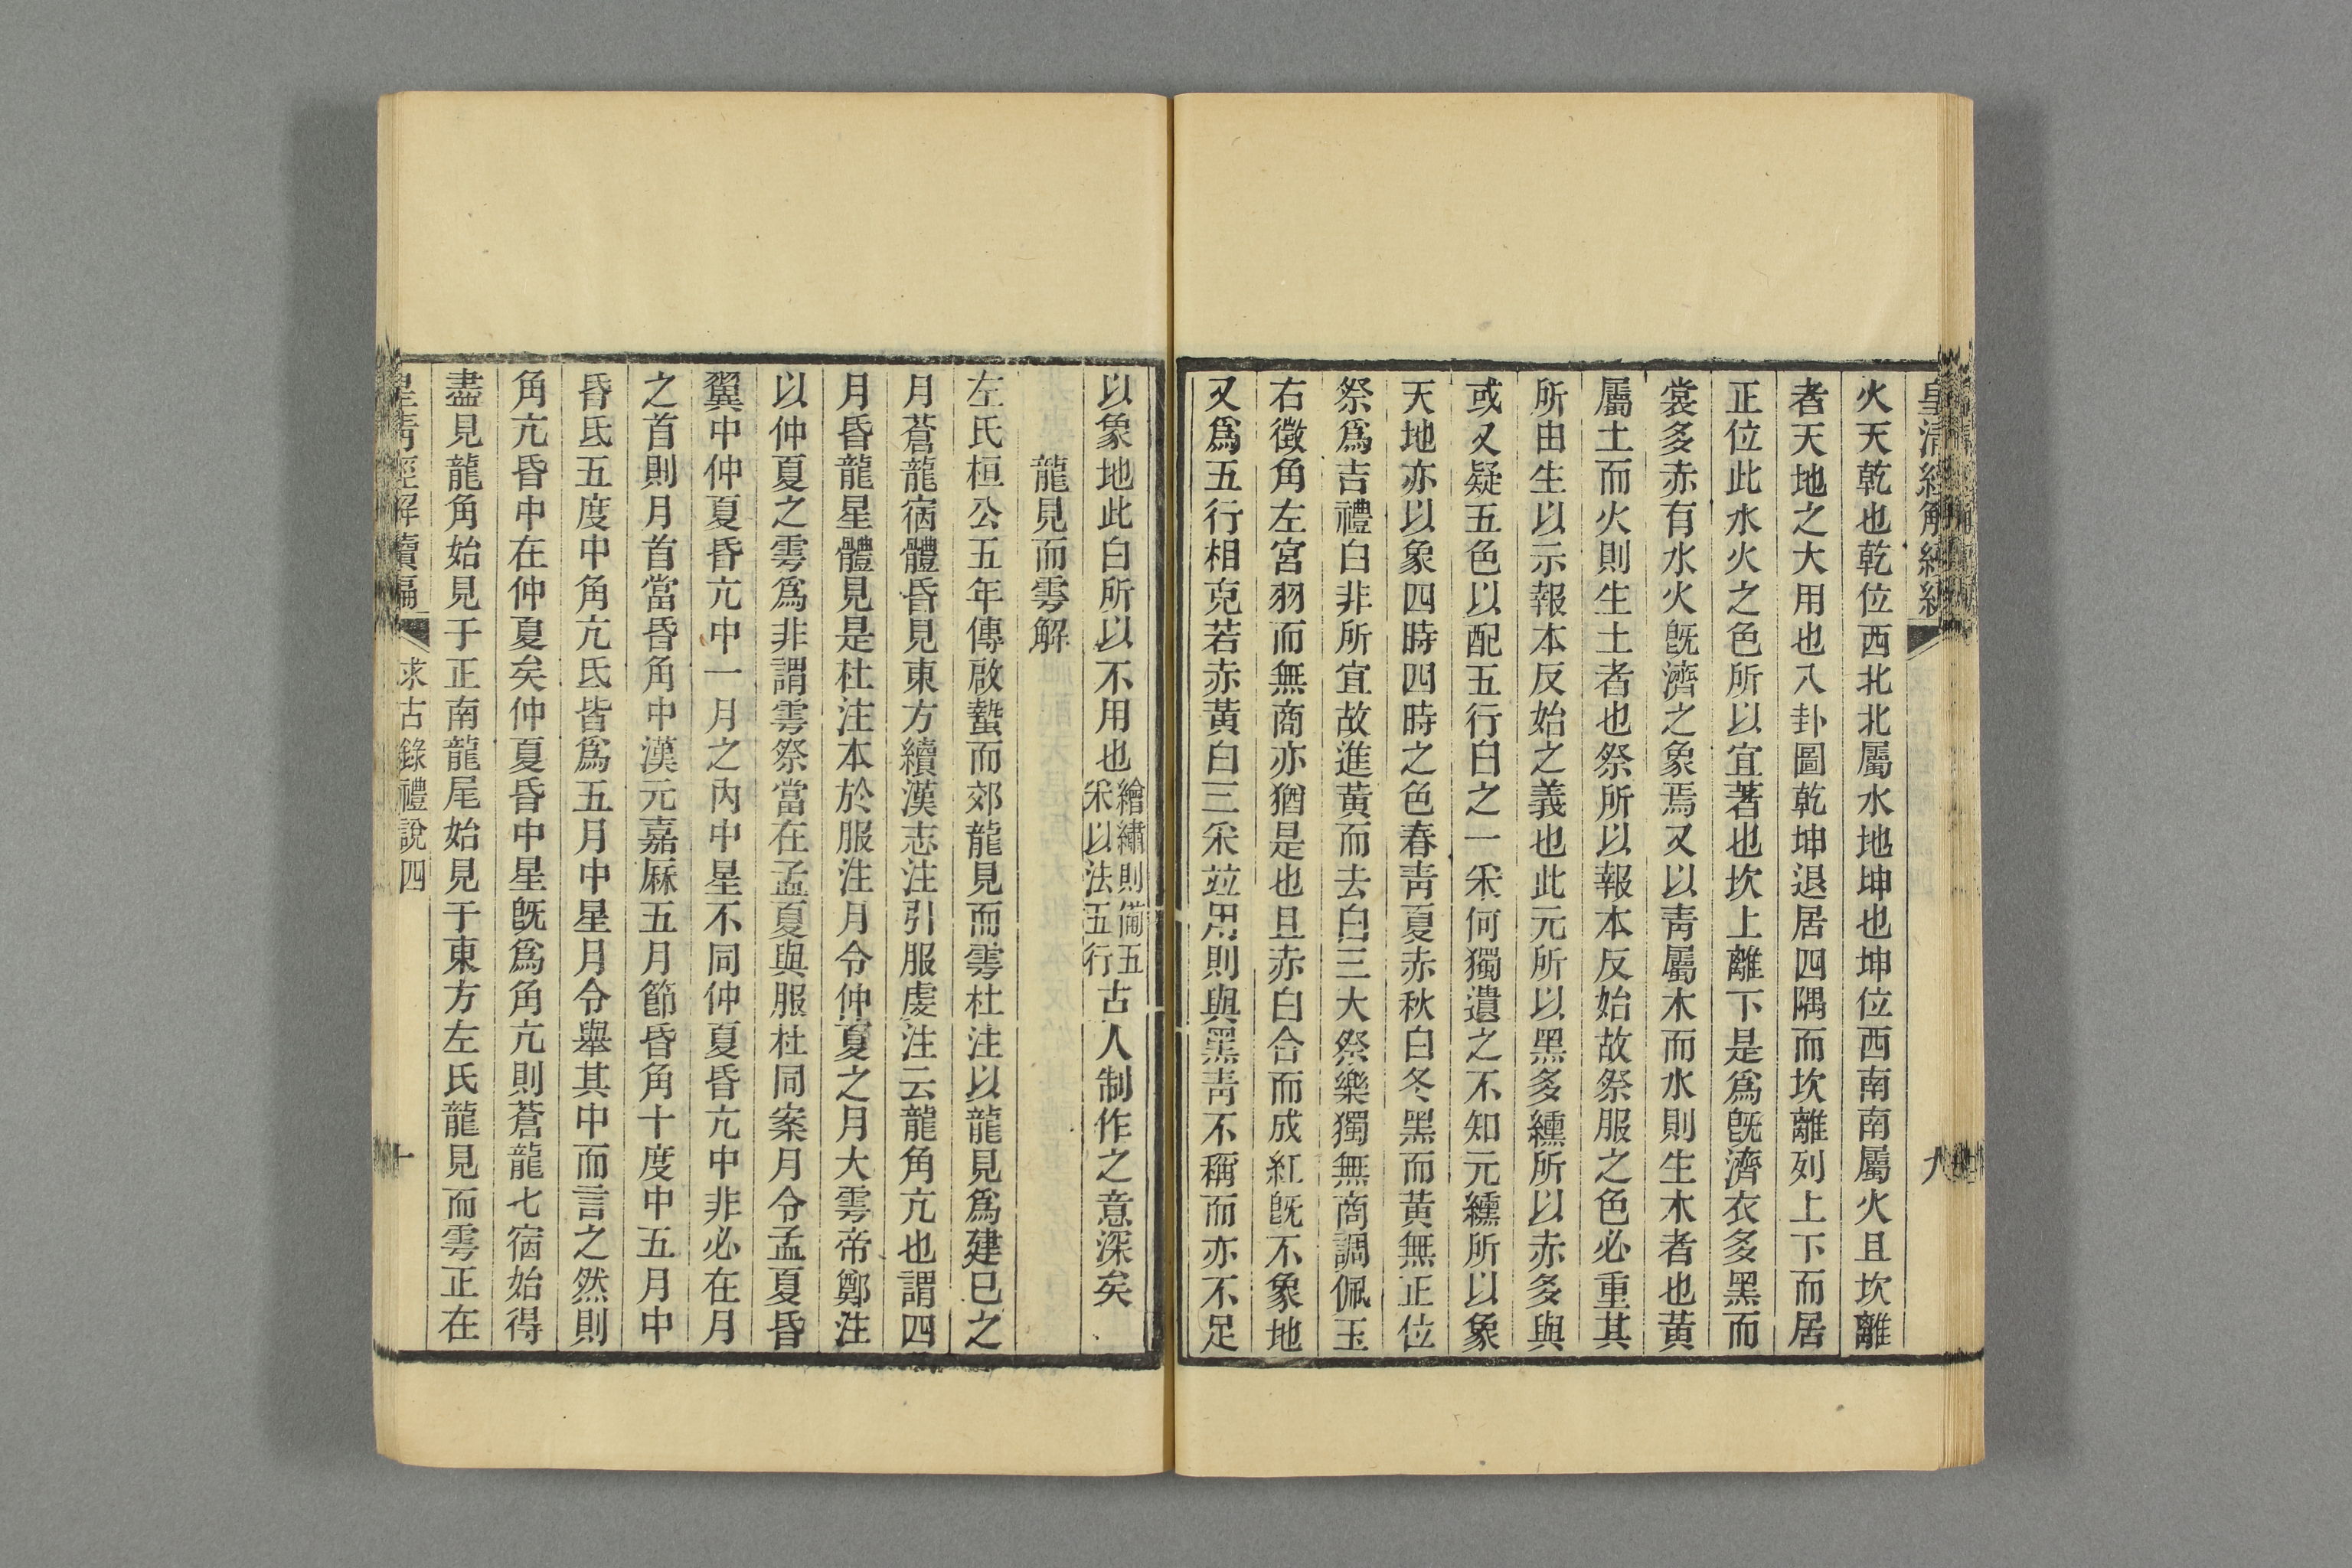 皇清經解續編
九
火天乾也乾位西北北屬水地坤也坤位西南南屬火且坎離
者天地之大用也八卦圖乾坤退居四隅而坎離列上下而居
正位此水火之色所以宜著也坎上離下是爲旣濟衣多黑而
裳多赤有水火旣濟之象焉又以靑屬木而水則生木者也黃
屬土而火則生土者也祭所以報本反始故祭服之色必重其
所由生以示報本反始之義也此元所以黑多纁所以赤多與
或又疑五色以配五行白之一采何獨遺之不知元纁所以象
天地亦以象四時四時之色春靑夏赤秋白冬黑而黃無正位
祭爲吉禮白非所宜故進黃而去白三大祭樂獨無商調佩玉
右徵角左宮羽而無商亦猶是也且赤白合而成紅旣不象地
又爲五行相克若赤黃白三采竝用則與黑靑不稱而亦不足
以象地此白所以不用也繪繡則備五采以法五行古人制作之意深矣
龍見而雩解
左氏桓公五年傳啟蟄而郊龍見而雩杜注以龍見爲建巳之
月蒼龍宿體昏見東方續漢志注引服虔注云龍角亢也謂四
月昏龍星體見是杜注本於服注月令仲夏之月大雩帝鄭注
以仲夏之雩爲非謂雩祭當在孟夏與服杜同案月令孟夏昏
翼中仲夏昏亢中一月之內中星不同仲夏昏亢中非必在月
之首則月首當昏角中漢元嘉厤五月節昏角十度中五月中
昏氐五度中角亢氐皆爲五月中星月令舉其中而言之然則
角亢昏中在仲夏矣仲夏昏中星旣爲角亢則蒼龍七宿始得
盡見龍角始見于正南龍尾始見于東方左氏龍見而雩正在
皇清經解續編
求古錄禮說四
十